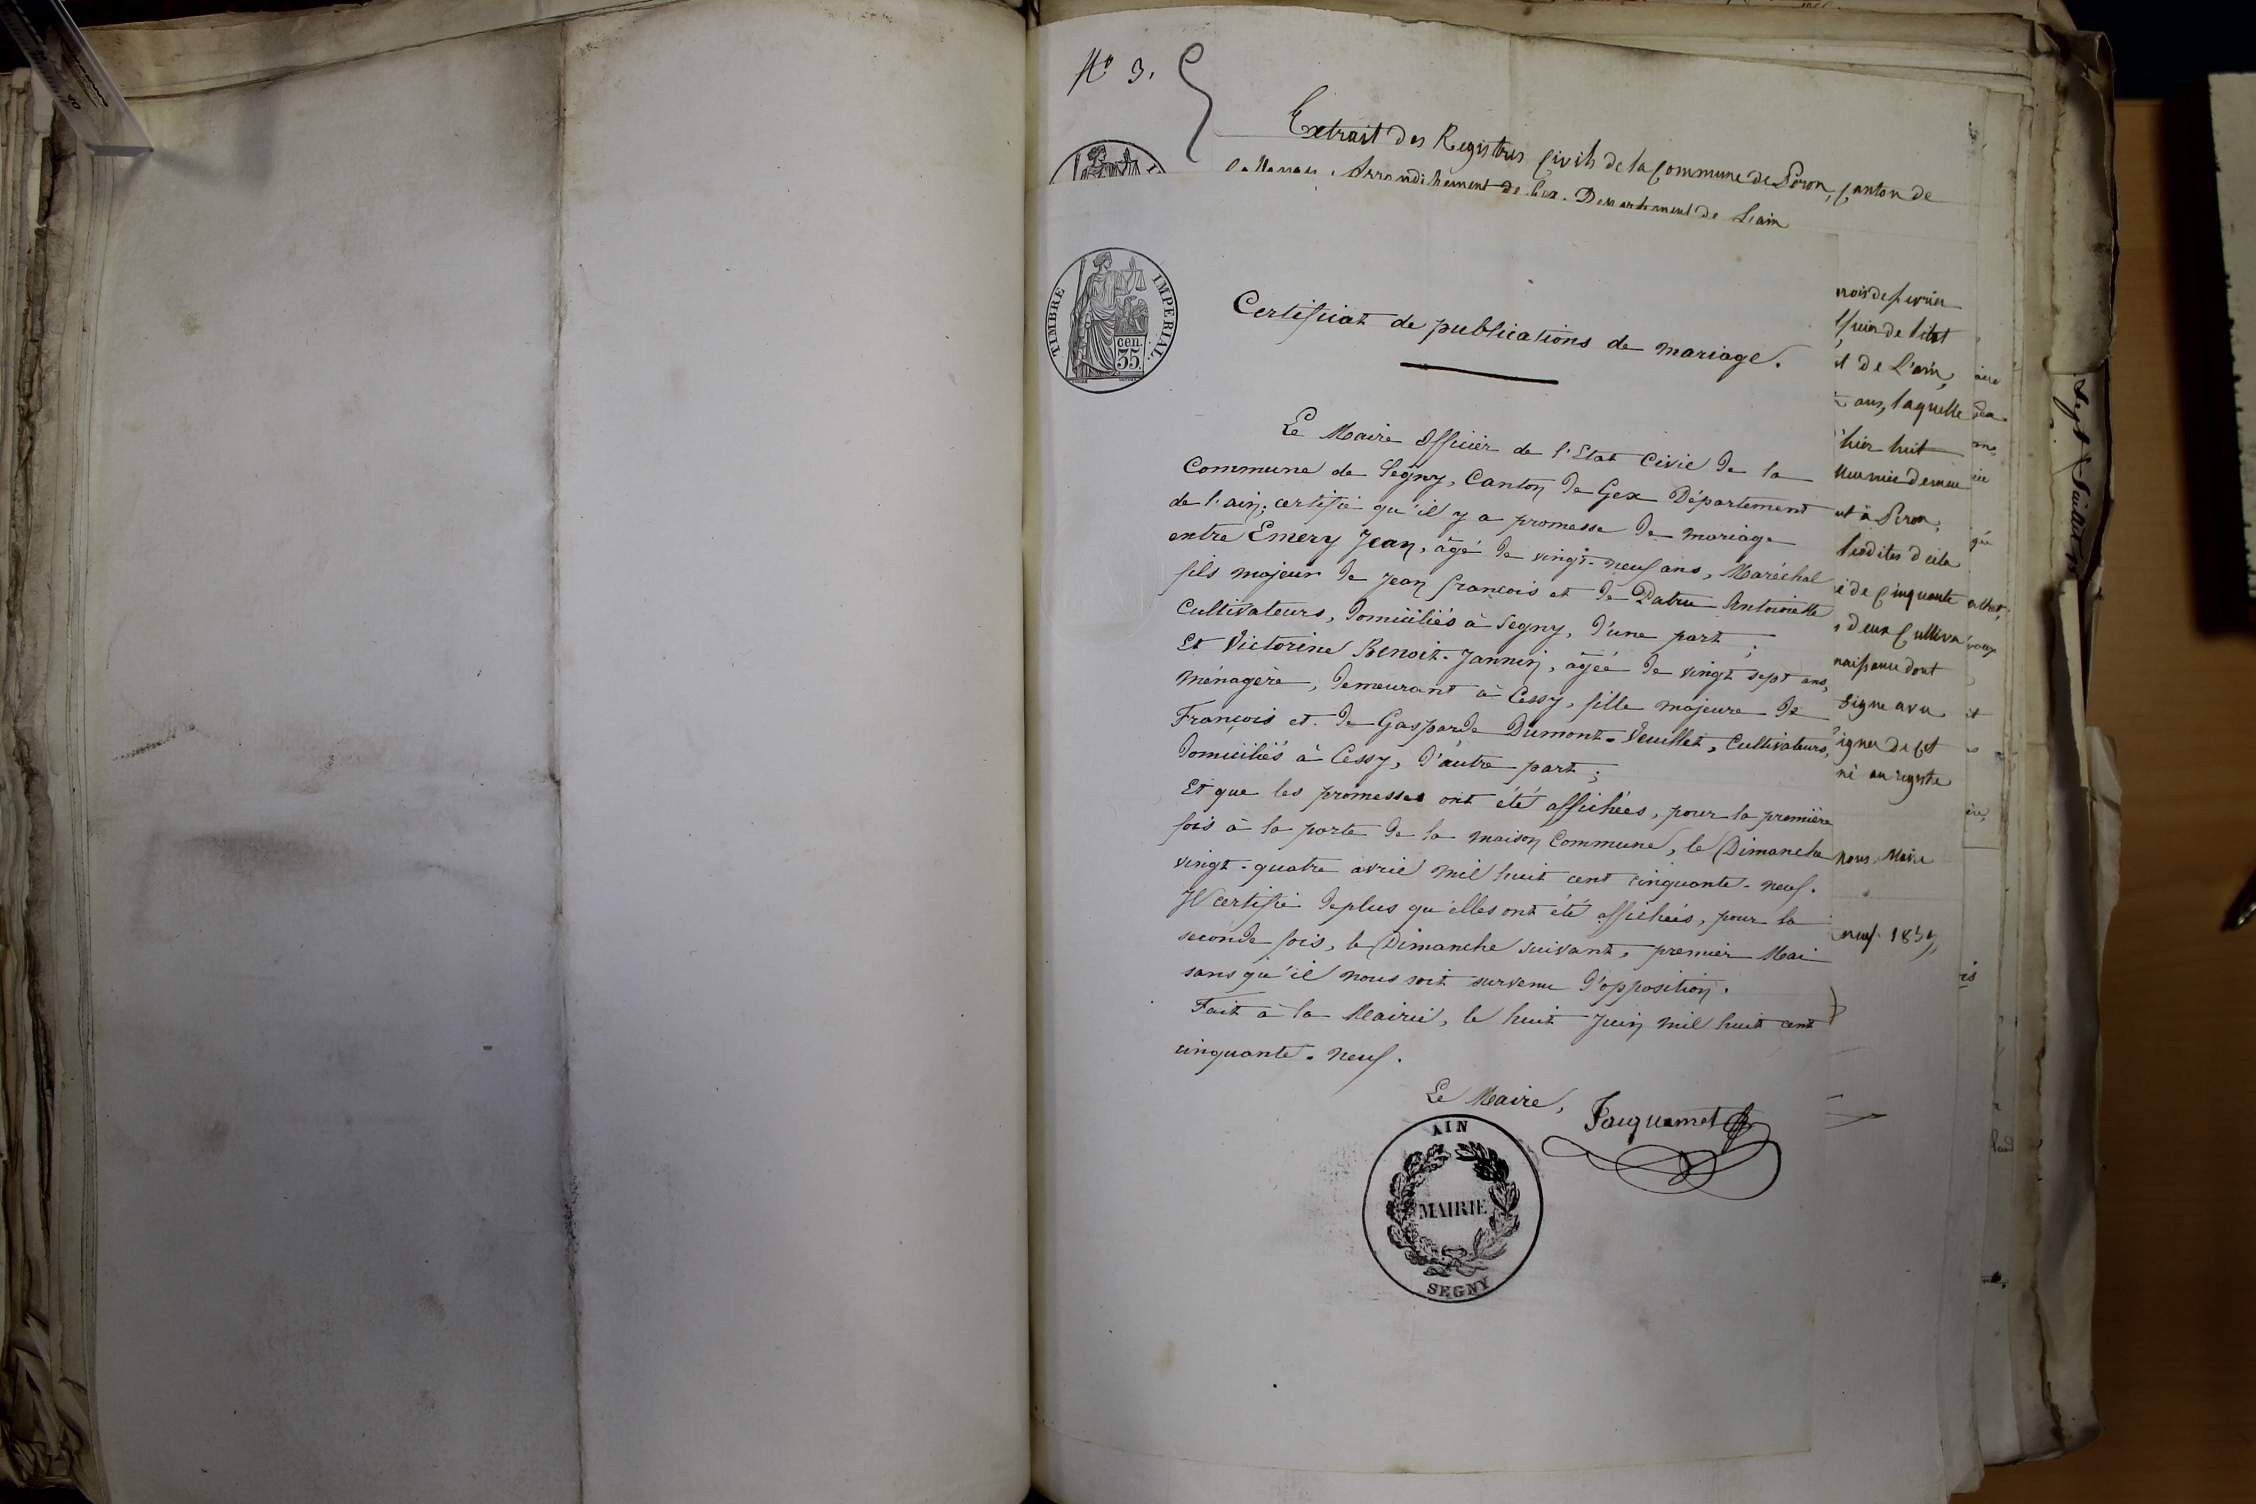 N° 3.
Extrait des Registres Civils de la Commune de Péron, Canton de
Collonges, Arrondissement de Gex. Département de L'ain
TIMBRE IMPERIAL
35 cen.
Certificat de publications de mariage.
Le Maire Officier de l'Etat Civil de la
Commune de Segny, Canton de Gex Département
de l'ain, certifie qu'il y a promesse de mariage
entre Emery Jean, âgé de vingt-neuf ans, Maréchal
fils majeur de Jean françois et de Dabru Antoinette
Cultivateurs, domiciliés à Segny, d'une part ;
Et Victorine Benoit-Jannin, âgée de vingt sept ans,
Ménagère, demeurant à Cessy, fille majeure de
François et de Gasparde Dumont-Veuillet, Cultivateurs,
domiciliés à Cessy, d'autre part ;
Et que les promesses ont été affichées, pour la première
fois à la porte de la maison Commune, le Dimanche
vingt-quatre avril mil huit cent cinquante-neuf.
Il certifie de plus qu'elles ont été affichées, pour la
seconde fois, le Dimanche suivant, premier Mai
sans qu'il nous soit survenu d'opposition.
Fait à la Mairie, le huit Juin mil huit cent
cinquante-neuf.
Le Maire, Jacquemet
AIN
MAIRIE
SEGNY
mois de février
de l'état
t de L'ain,
ans, laquelle
hier huit
et à Péron,
é de Cinquante
deux Cultiva
naissance dont
signé avec
igner de cet
né au registre
nous Maire
neuf 1859